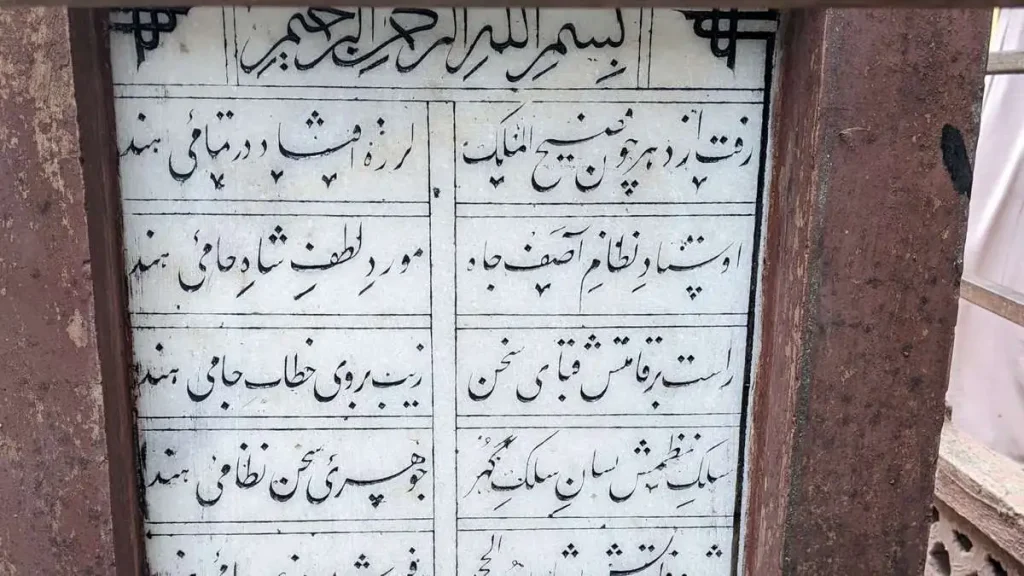 بسم اللہ الرحمن الرحیم
رفت از دهر چون فصیح الملک لرزه افتاد در تمامئ هند
اوستادِ نظامِ آصف جاه موردِ لطفِ شاهِ حامئ هند
راست بر قامتش قبای سخن زیب بروی خطاب جامی هند
سلکِ نظمش بسانِ سلکِ گهُر جوهرئ سخن نظامی هند